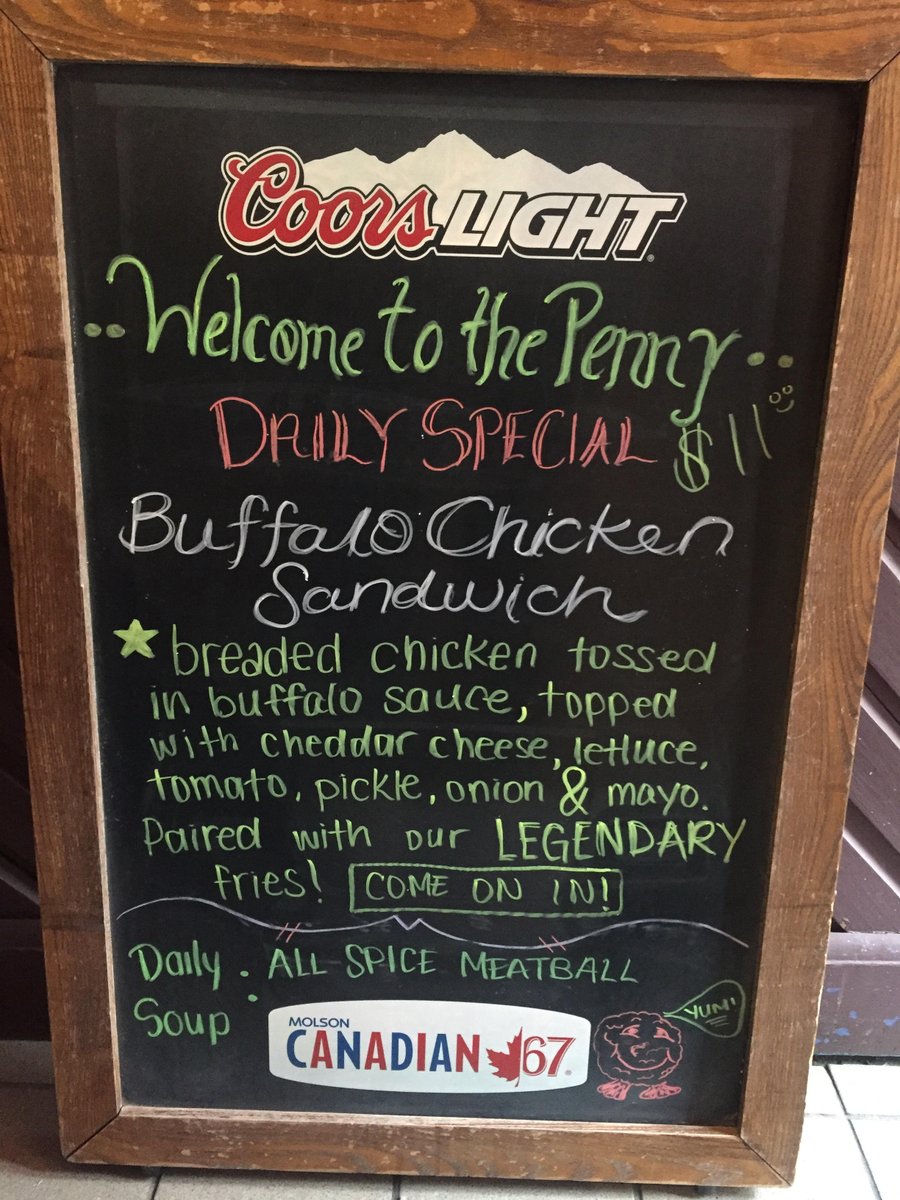 Coors LIGHT
Welcome to the Penny
DAILY SPECIAL $11
Buffalo Chicken
Sandwich
breaded chicken tossed
in buffalo sauce, topped
with cheddar cheese, lettuce,
tomato, pickle, onion & mayo.
Paired with our LEGENDARY
fries! COME ON IN!
Daily . ALL SPICE MEATBALL
Soup .
YUM!
MOLSON
CANADIAN 67